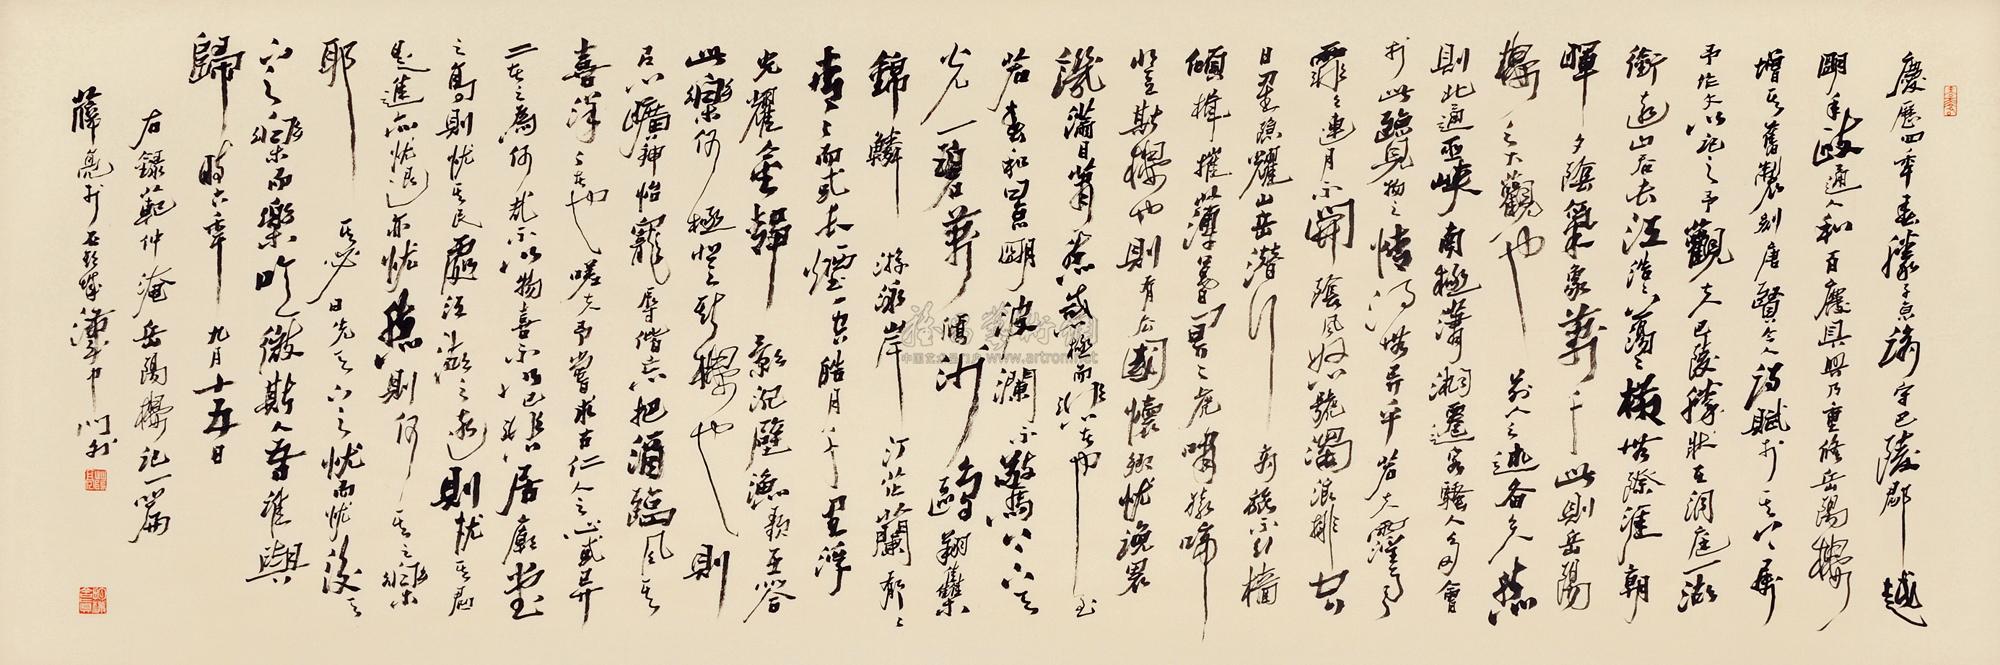 慶歷四年春滕子京謫守巴陵郡越
明年政通人和百廢具興乃重修岳陽樓
增其舊制刻唐賢今人詩賦於其上屬
予作文以記之予觀夫巴陵勝狀在洞庭一湖
銜遠山吞長江浩浩蕩蕩橫無際涯朝
暉夕陰氣象萬千此則岳陽
樓之大觀也前人之述備矣然
則北通巫峽南極瀟湘遷客騷人多會
於此覽物之情得無異乎若夫霪雨
霏霏連月不開陰風怒號濁浪排空
日星隱耀山岳潛行商旅不行檣
傾楫摧薄暮冥冥虎嘯猿啼
登斯樓也則有去國懷鄉憂讒畏
譏滿目蕭然感極而悲者也至
若春和景明波瀾不驚上下天
光一碧萬頃沙鷗翔集
錦鱗游泳岸芷汀蘭郁郁
青青而或長煙一空皓月千里浮
光耀金靜影沉璧漁歌互答
此樂何極登斯樓也則
有心曠神怡寵辱偕忘把酒臨風其
喜洋洋者也嗟夫予嘗求古仁人之心或異
二者之為何哉不以物喜不以己悲居廟堂
之高則憂其民處江湖之遠則憂其君
是進亦憂退亦憂然則何時而樂
耶其必曰先天下之憂而憂後天
下之樂而樂吟微斯人吾誰與
歸時六年九月十五日
右錄范仲淹岳陽樓記一篇
薛亮於石頭城蒲華中門外
中国艺术品门户 www.artron.net